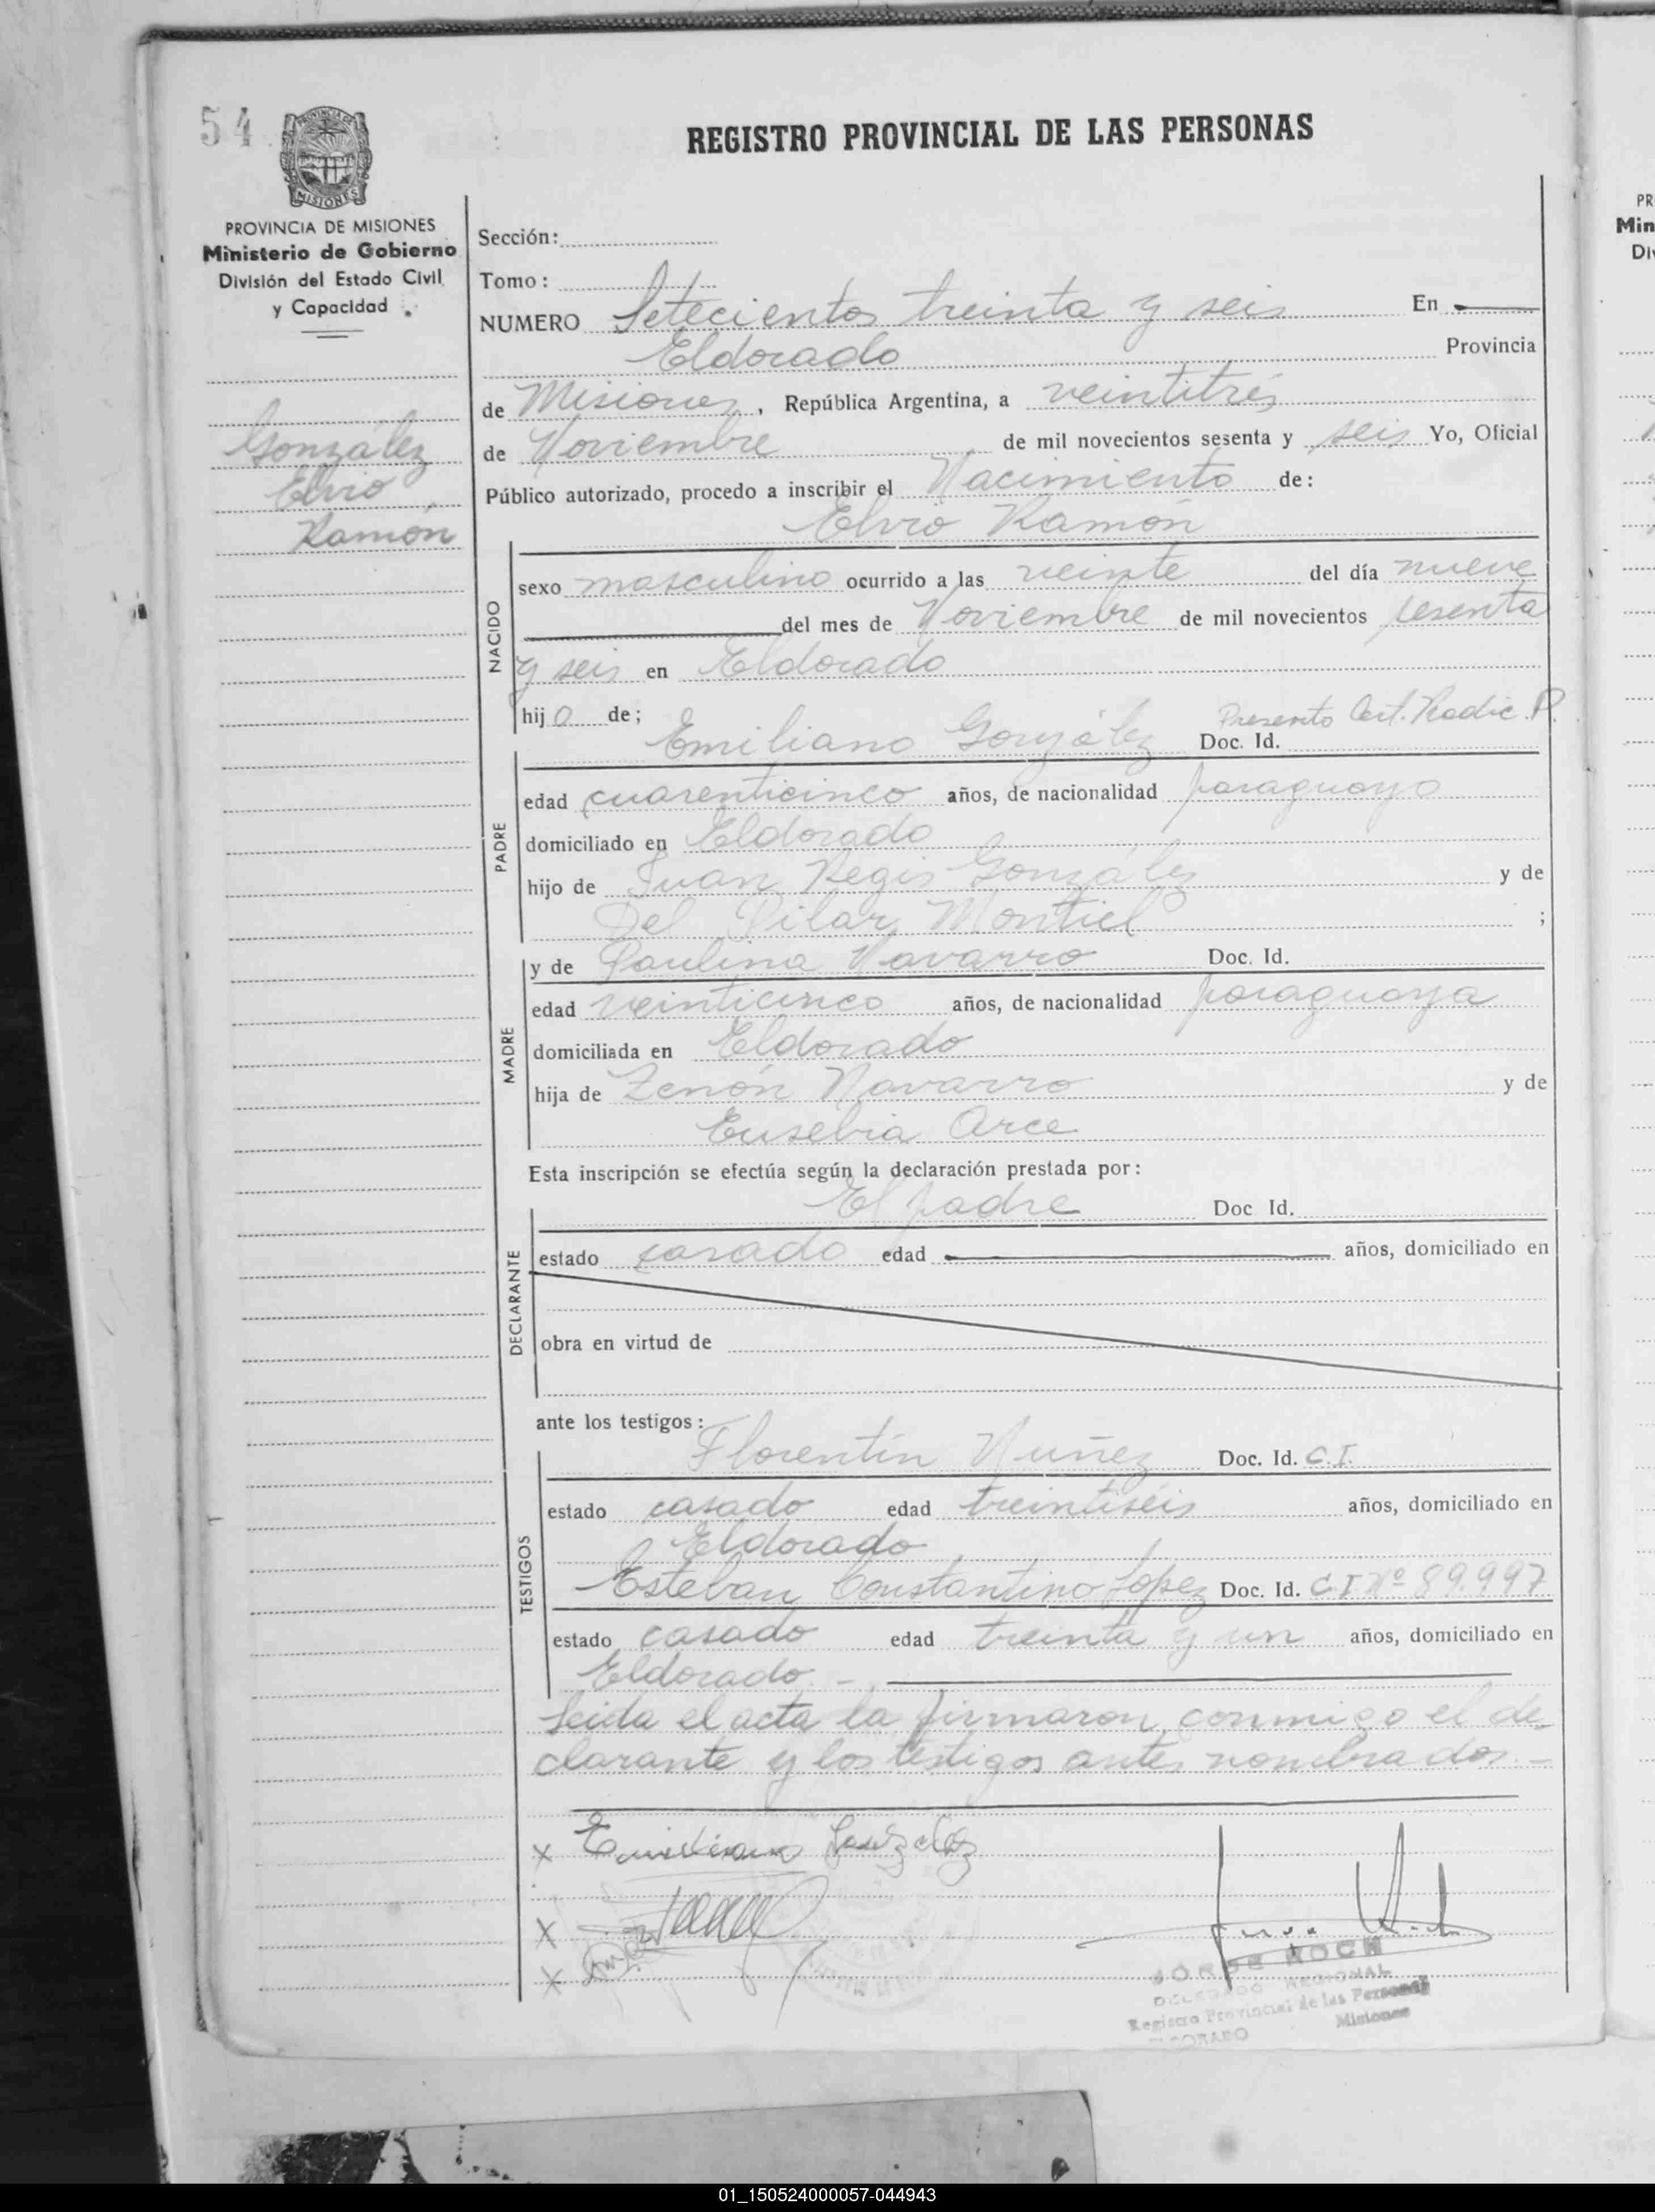 54
REGISTRO PROVINCIAL DE LAS PERSONAS
MISIONES
PROVINCIA DE MISIONES
Ministerio de Gobierno
División del Estado Civil
y Capacidad
González
Elvio
Ramón
Sección:
Tomo:
NUMERO Setecientos treinta y seis En
Eldorado Provincia
de Misiones, República Argentina, a veintitrés
de Noviembre de mil novecientos sesenta y seis Yo, Oficial
Público autorizado, procedo a inscribir el Nacimiento de:
Elvio Ramón
NACIDO
sexo masculino ocurrido a las veinte del día nueve
del mes de Noviembre de mil novecientos sesenta
y seis en Eldorado
hijo de;
Presento Cert. Radic. P.
Emiliano González Doc. Id.
PADRE
edad cuarenticinco años, de nacionalidad paraguayo
domiciliado en Eldorado
hijo de Juan Regis González y de
Del Pilar Montiel ;
MADRE
y de Paulina Navarro Doc. Id.
edad veinticinco años, de nacionalidad paraguaya
domiciliada en Eldorado
hija de Zenón Navarro y de
Eusebia Arce
Esta inscripción se efectúa según la declaración prestada por:
El padre Doc Id.
DECLARANTE
estado casado edad años, domiciliado en
obra en virtud de
ante los testigos:
Florentín Nuñez Doc. Id. C.I.
TESTIGOS
estado casado edad treintiséis años, domiciliado en
Eldorado
Esteban Constantino Lopez Doc. Id. C I Nº 89.997
estado casado edad treinta y un años, domiciliado en
Eldorado. -
Leida el acta la firmaron conmigo el de-
clarante y los testigos antes nombrados. -
x Emiliano Gonzalez
x
x
JORGE HOCH
DELEGADO REGIONAL
Registro Provincial de las Personas
ELDORADO Misiones
PR
Min
Di
01_150524000057-044943